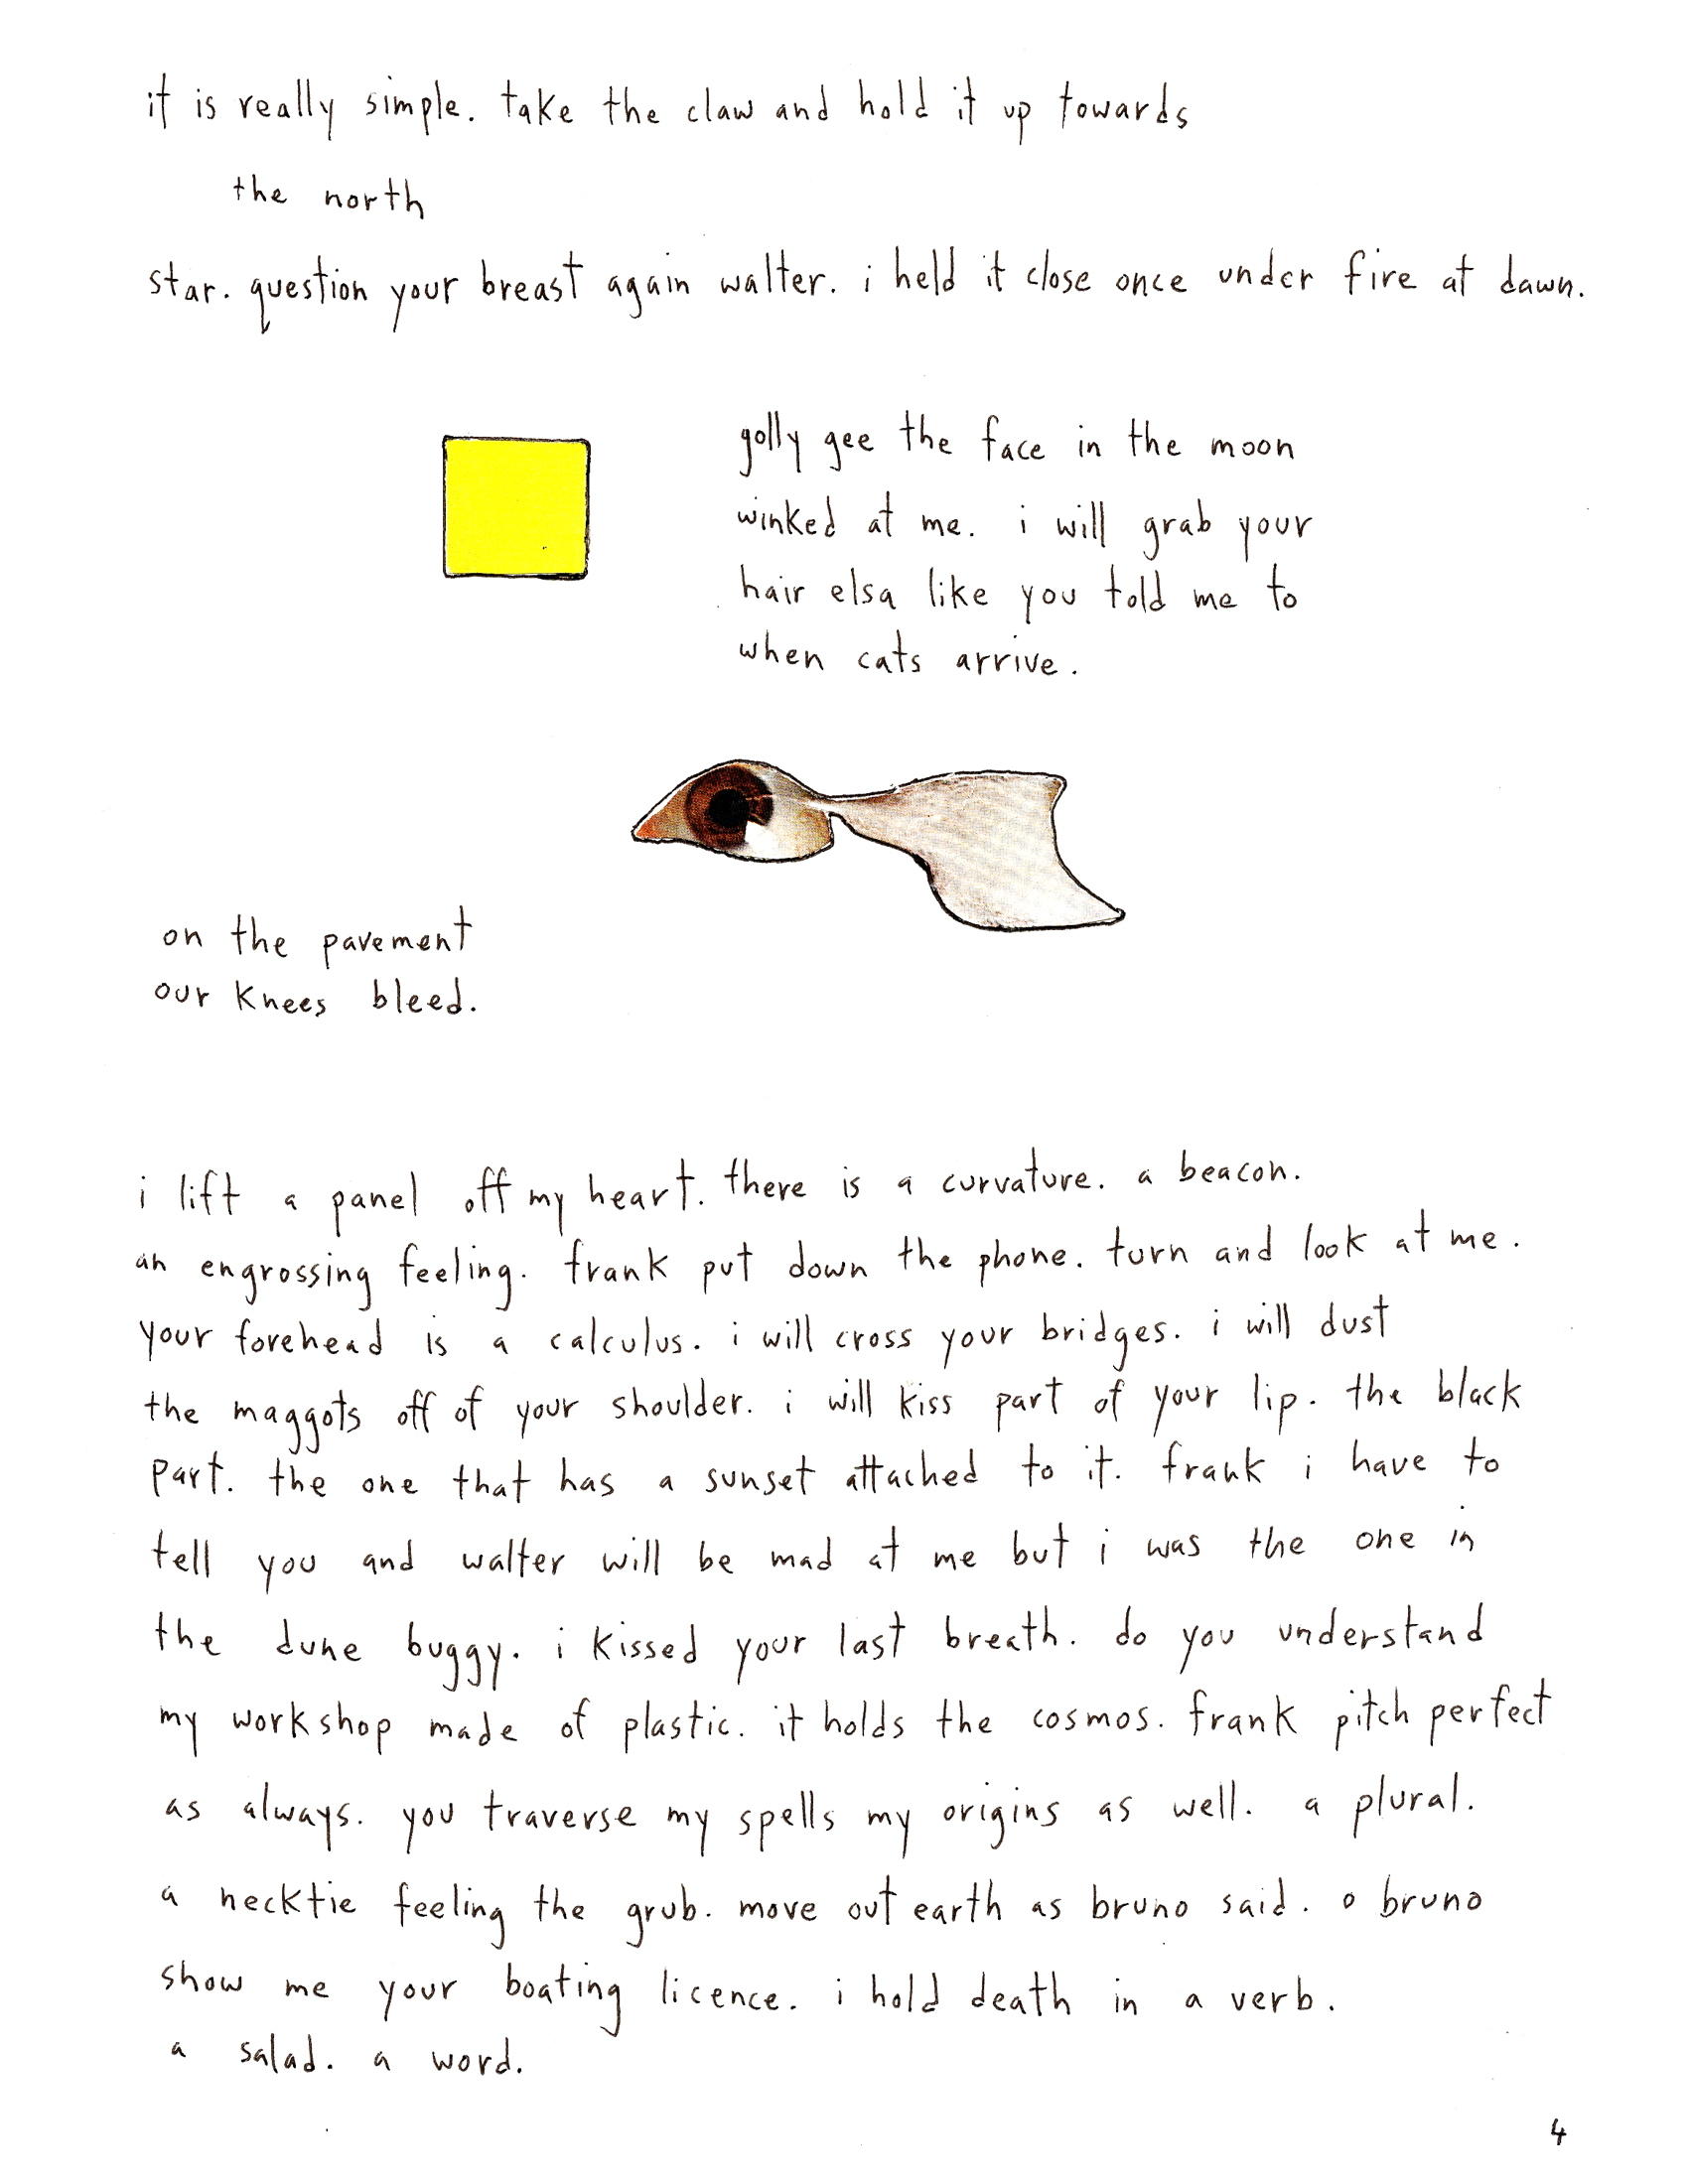 it is really simple. take the claw and hold it up towards
the north
star. question your breast again walter. i held it close once under fire at dawn.
golly gee the face in the moon
winked at me. i will grab your
hair elsa like you told me to
when cats arrive.
on the pavement
our knees bleed.
i lift a panel off my heart. there is a curvature. a beacon.
an engrossing feeling. frank put down the phone. turn and look at me.
your forehead is a calculus. i will cross your bridges. i will dust
the maggots off of your shoulder. i will kiss part of your lip. the black
part. the one that has a sunset attached to it. frank i have to
tell you and walter will be mad at me but i was the one in
the dune buggy. i kissed your last breath. do you understand
my workshop made of plastic. it holds the cosmos. frank pitch perfect
as always. you traverse my spells my origins as well. a plural.
a necktie feeling the grub. move out earth as bruno said. o bruno
show me your boating licence. i hold death in a verb.
a salad. a word.
4